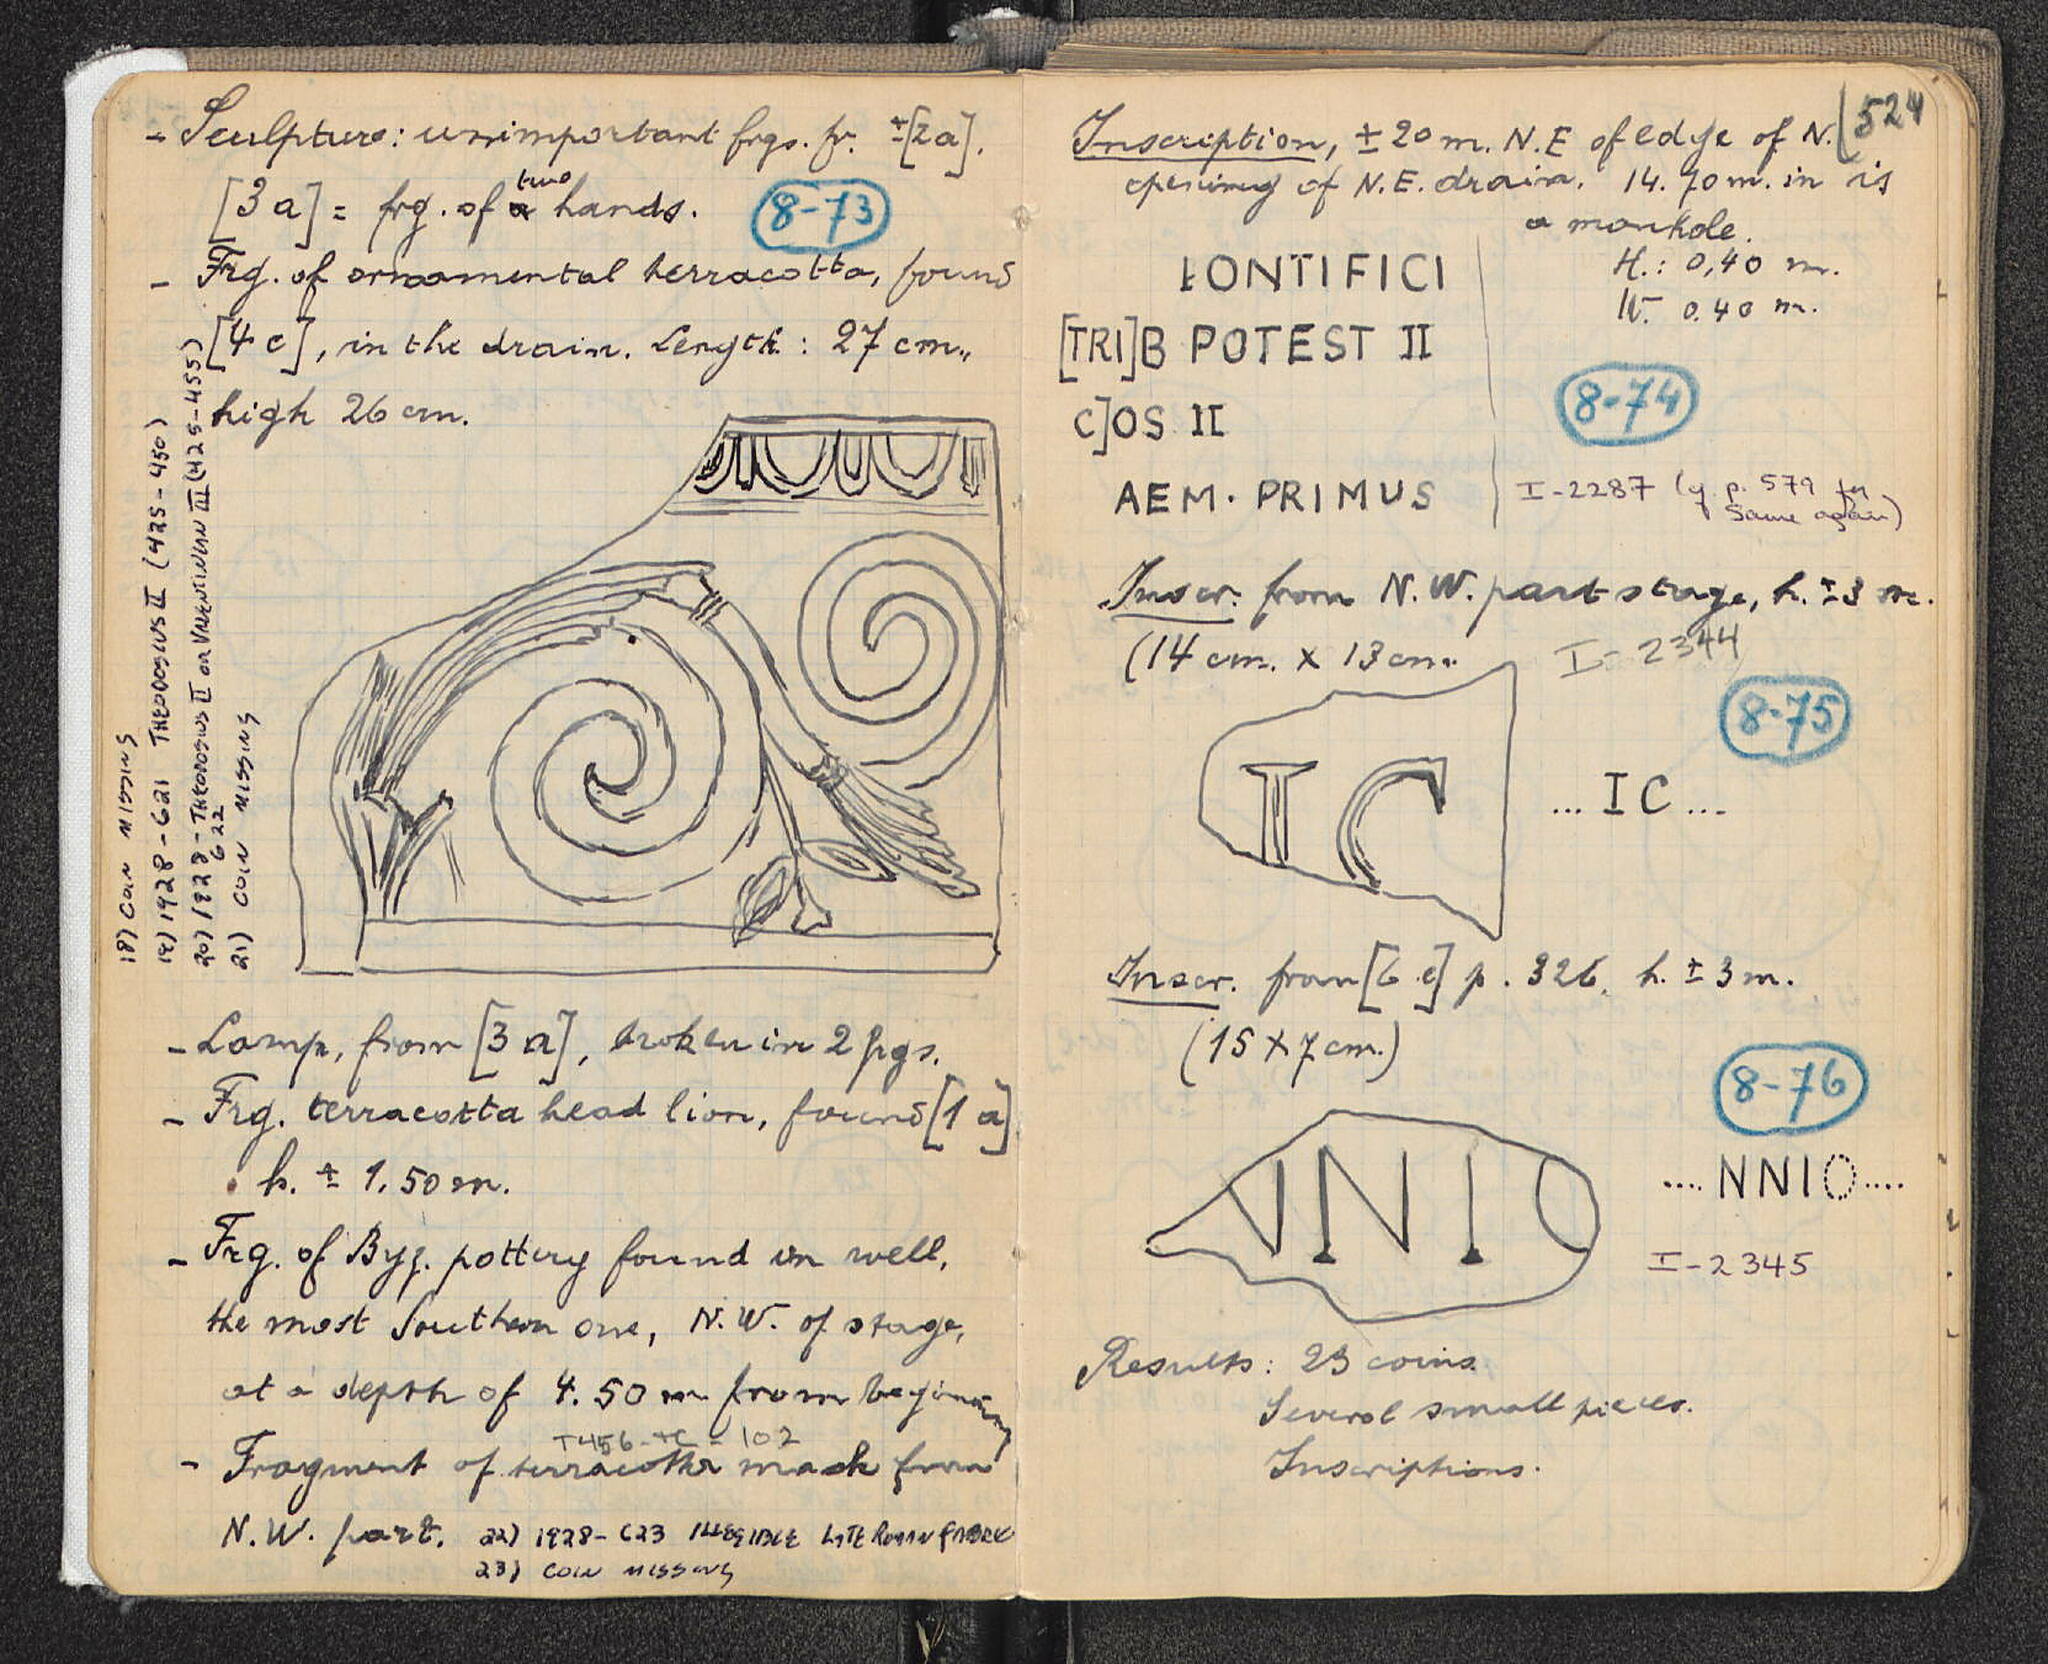 - Sculpture: unimportant frgs. fr. ±[2a].
[3a] = frg. of two hands.
8-73
- Frg. of ornamental terracotta, found
[4c], in the drain. Length: 27 cm.,
high 26 cm.
18) COIN MISSING
19) 1928-621 THEODOSIUS II (425-450)
20) 1928-622 THEODOSIUS II OR VALENTINIAN III (425-455)
21) COIN MISSING
- Lamp, from [3a], broken in 2 frgs.
- Frg. terracotta head lion, found [1a]
h. ± 1.50 m.
- Frg. of Byz. pottery found in well,
the most Southern one, N.W. of stage,
at a depth of 4.50 m from beginning
T456-TC=102
- Fragment of terracotta mask from
N.W. part. 22) 1928-623 ILLEGIBLE LATE ROMAN FABRIC
23) COIN MISSING
524
Inscription, ± 20 m. N.E of edge of N.
opening of N.E. drain. 14.70 m. in is
a manhole.
H.: 0,40 m.
W. 0.40 m.
PONTIFICI
[TRI]B POTEST II
C]OS II
8-74
AEM. PRIMUS
I-2287 (cf. p. 579 for
same again)
Inscr. from N.W. part stage, h. ±3 m.
(14 cm. X 13 cm.
I-2344
8-75
IC
... IC ...
Inscr. from [6 e] p. 326. h. ± 3 m.
(15 X 7 cm.)
8-76
VNIO
.... NNIO ....
I-2345
Results: 23 coins.
Several small pieces.
Inscriptions.